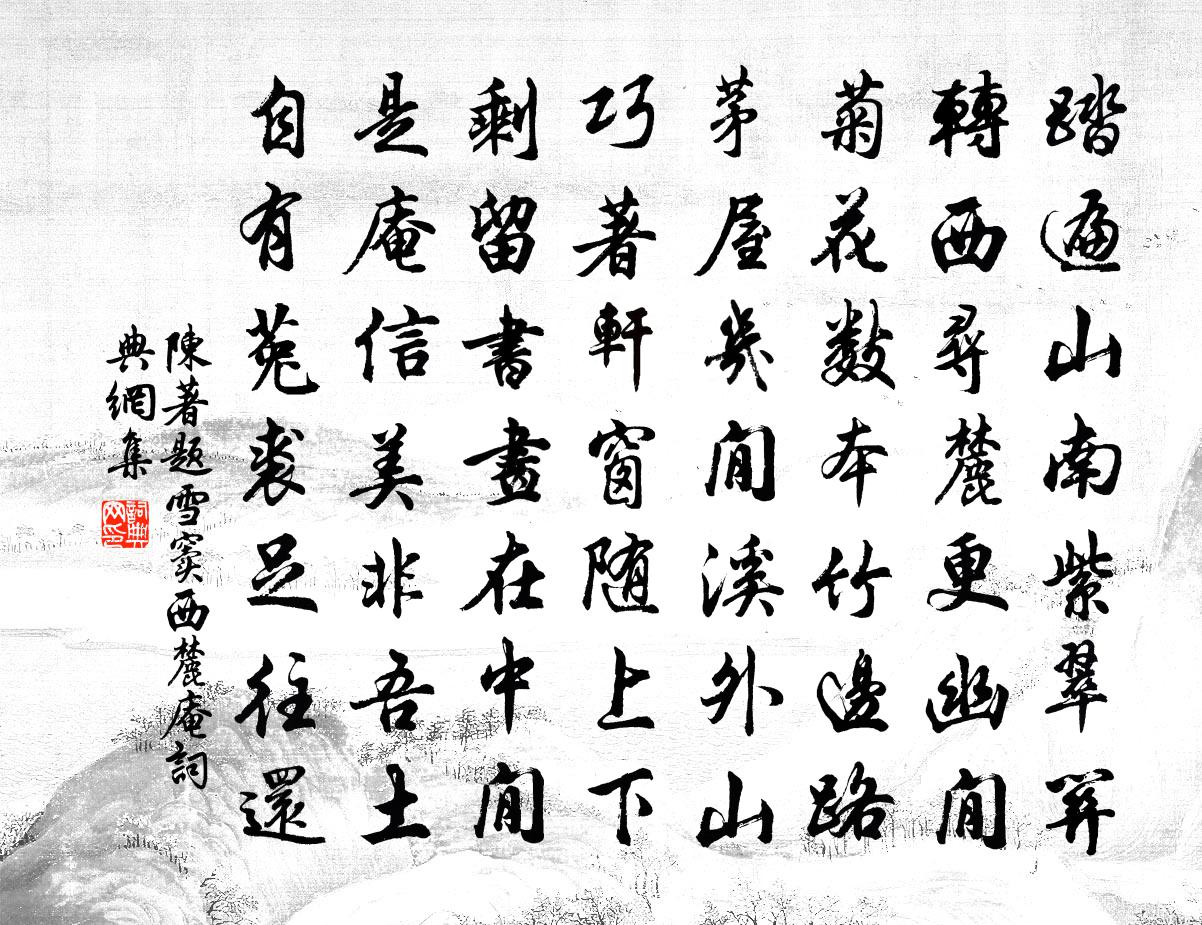 踏遍山南紫翠關
轉西尋麓更幽閒
菊花數本竹邊路
茅屋幾間溪外山
巧著軒窗隨上下
剩留書畫在中間
是庵信美非吾土
自有菟裘足往還
陳著題雪竇西麓庵詞
典網集
詞典
网印